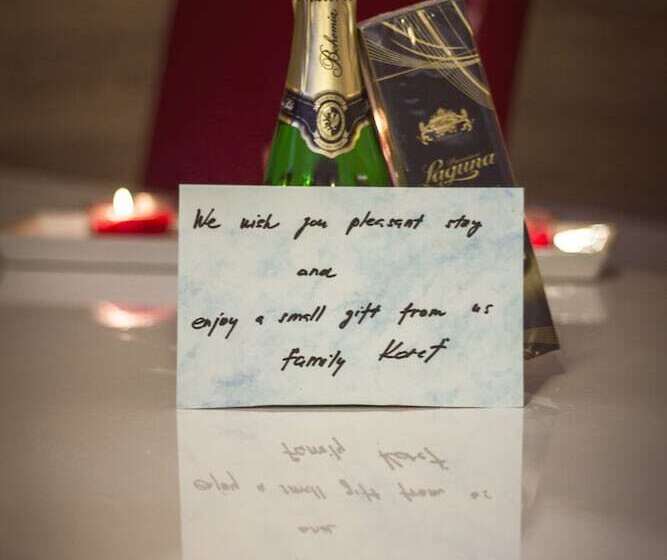 Bohemia
Laguna
We wish you pleasant stay
and
enjoy a small gift from us
family Koref